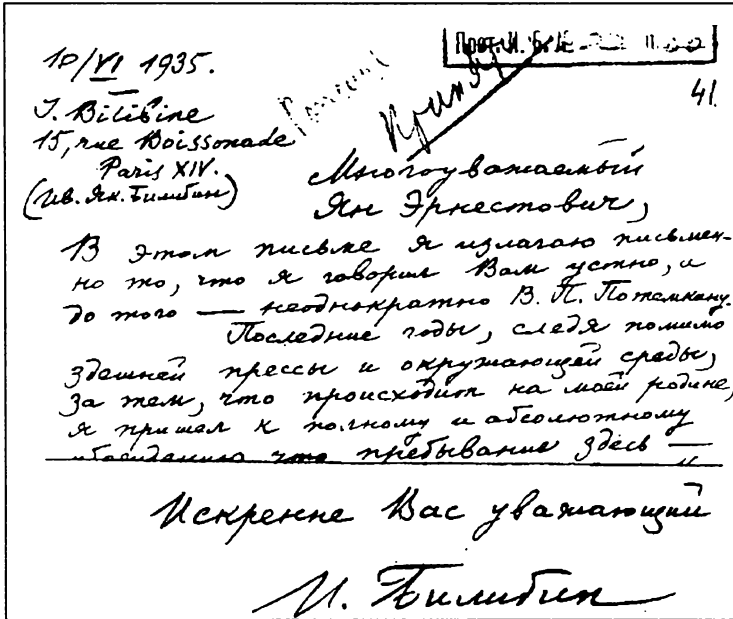 10/VI 1935.
41.
J. Bilibine
15, rue Boissonade
Paris XIV.
(Ив. Як. Билибин)
Многоуважаемый
Ян Эрнестович,
В этом письме я излагаю письмен-
но то, что я говорил Вам устно, и
до того — неоднократно В. П. Потемкину.
Последние годы, следя помимо
здешней прессы и окружающей среды,
за тем, что происходит на моей родине,
я пришел к полному и абсолютному
убеждению что пребывание здесь —
Искренне Вас уважающий
И. Билибин